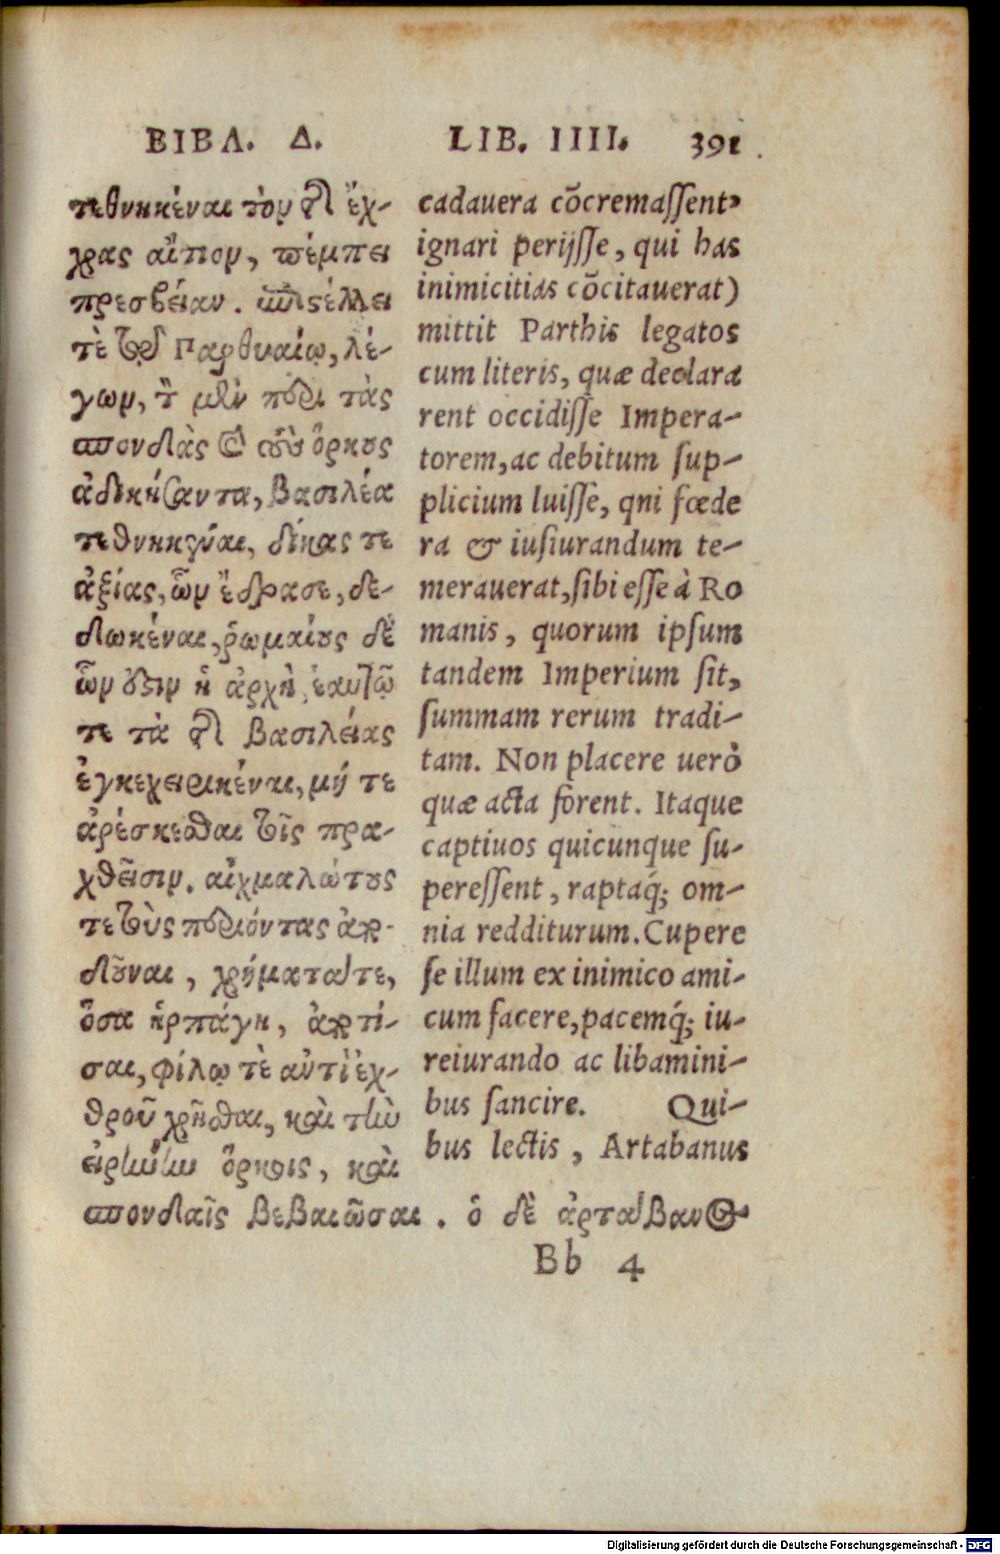 ΒΙΒΛ. Δ.
τεθνηκέναι τὸν τῆς ἔχ-
χρας αἴτιον, πέμπει
πρεσβείαν. ἐπιστέλλει
τὲ τῷ Παρθυαίῳ, λέ-
γων, τὸν μὲν περὶ τὰς
σπονδὰς καὶ τοὺς ὅρκους
ἀδικήσαντα, βασιλέα
τεθνηκέναι, δίκας τε
ἀξίας, ὧν ἔδρασε, δε-
δωκέναι, ῥωμαίους δὲ
ὧν οὖσιν ἡ ἀρχὴ, ἑαυτῷ
τε τὰ τῆς βασιλείας
ἐγκεχειρικέναι, μή τε
ἀρέσκεσθαι τοῖς πρα-
χθεῖσιν. αἰχμαλώτους
τε τοὺς περιόντας ἀπο-
δοῦναι, χρήματά τε,
ὅσα ἡρπάγη, ἀποτί-
σαι, φίλῳ τὲ ἀντὶ ἐχ-
θροῦ χρῆσθαι, καὶ τὴν
εἰρήνην ὅρκοις, καὶ
σπονδαῖς βεβαιῶσαι. ὁ δὲ ἀρτάβανος
LIB. IIII. 391
cadauera cõcremassent,
ignari perijsse, qui has
inimicitias cõcitauerat)
mittit Parthis legatos
cum literis, quæ declara
rent occidisse Impera-
torem, ac debitum sup-
plicium luisse, qni fœde
ra & iusiurandum te-
merauerat, sibi esse à Ro
manis, quorum ipsum
tandem Imperium sit,
summam rerum tradi-
tam. Non placere uerò
quæ acta forent. Itaque
captiuos quicunque su-
peressent, raptaq́; om-
nia redditurum. Cupere
se illum ex inimico ami-
cum facere, pacemq́; iu-
reiurando ac libamini-
bus sancire. Qui-
bus lectis, Artabanus
Bb 4
Digitalisierung gefördert durch die Deutsche Forschungsgemeinschaft - DFG